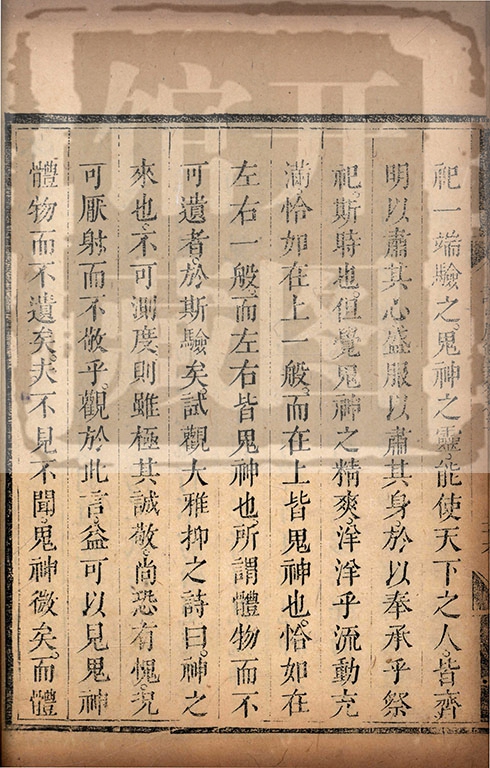 祀一端驗之。鬼神之靈。能使天下之人。皆齊
明以肅其心盛服以肅其身。於以奉承乎祭
祀。斯時也。但覺鬼神之精爽。洋洋乎流動充
滿。恰如在上一般。而在上皆鬼神也。恰如在
左右一般。而左右皆鬼神也。所謂體物而不
可遺者。於斯驗矣。試觀大雅抑之詩曰。神之
來也。不可測度。則雖極其誠敬。尚恐有愧。況
可厭射而不敬乎。觀於此言。益可以見鬼神
體物而不遺矣。夫不見不聞。鬼神微矣。而體